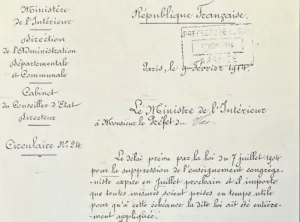 Ministère
de l'Intérieur
Direction
de l'Administration
Départementale
et Communale
Cabinet
du Conseiller d'Etat
Directeur
Circulaire N° 24
République Française.
Paris, le 9 Février 1914.
Le Ministre de l'Intérieur
à Monsieur le Préfet d
Le délai prévu par la loi du 7 juillet 1904
pour la suppression de l'enseignement congréga-
niste expire en Juillet prochain et il importe
que toutes mesures soient prises en temps utile
pour qu'à cette échéance la dite loi ait été entière-
ment appliquée.